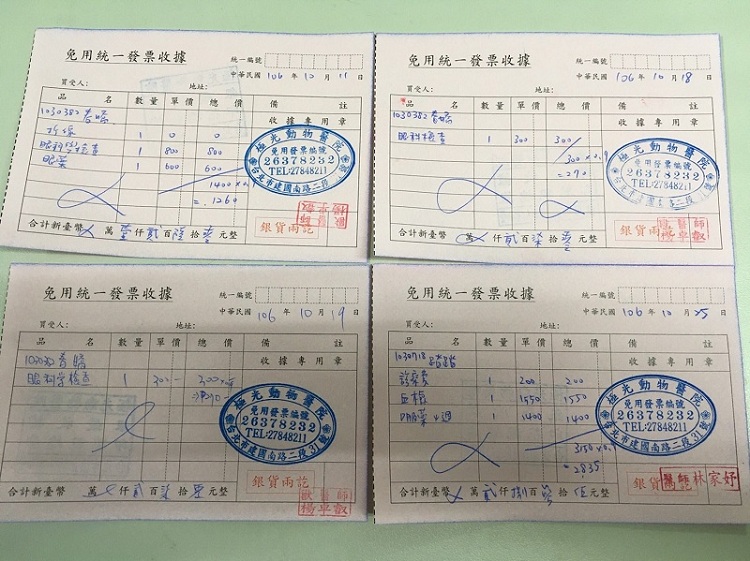 免用統一發票收據
統一編號
中華民國 106 年 10 月 11 日
買受人: 地址:
品名 數量 單價 總價 備註
1030382
收據專用章
拆線 1 0 0
眼科學檢查 1 800 800
眼藥 1 600 600
1400 x 0.9
= 1260
極光動物醫院
免用發票編號
26378232
TEL:27848211
台北市建國南路二段31號
合計新臺幣 萬 壹 仟 貳 百 陸 拾 元整
銀貨兩訖
免用統一發票收據
統一編號
中華民國 106 年 10 月 18 日
買受人: 地址:
品名 數量 單價 總價 備註
1030382
收據專用章
眼科檢查 1 300 300
300 x 0.9
= 270
極光動物醫院
免用發票編號
26378232
TEL:27848211
合計新臺幣 萬 仟 貳 百 柒 拾 元整
銀貨兩訖
免用統一發票收據
統一編號
中華民國 106 年 10 月 19 日
買受人: 地址:
品名 數量 單價 總價 備註
收據專用章
眼科學檢查 1 300
極光動物醫院
免用發票編號
26378232
TEL:27848211
台北市建國南路二段31號
合計新臺幣 萬 仟 貳 百 柒 拾 元整
銀貨兩訖
免用統一發票收據
統一編號
中華民國 106 年 10 月 25 日
買受人: 地址:
品名 數量 單價 總價 備註
1030718
收據專用章
診察費 1 200 200
血檢 1 1550 1550
口服藥4週 1 1400 1400
3150 x 0.9
= 2835
極光動物醫院
免用發票編號
26378232
TEL:27848211
台北市建國南路二段31號
合計新臺幣 萬 貳 仟 捌 百 拾 伍 元整
銀貨 林家妤